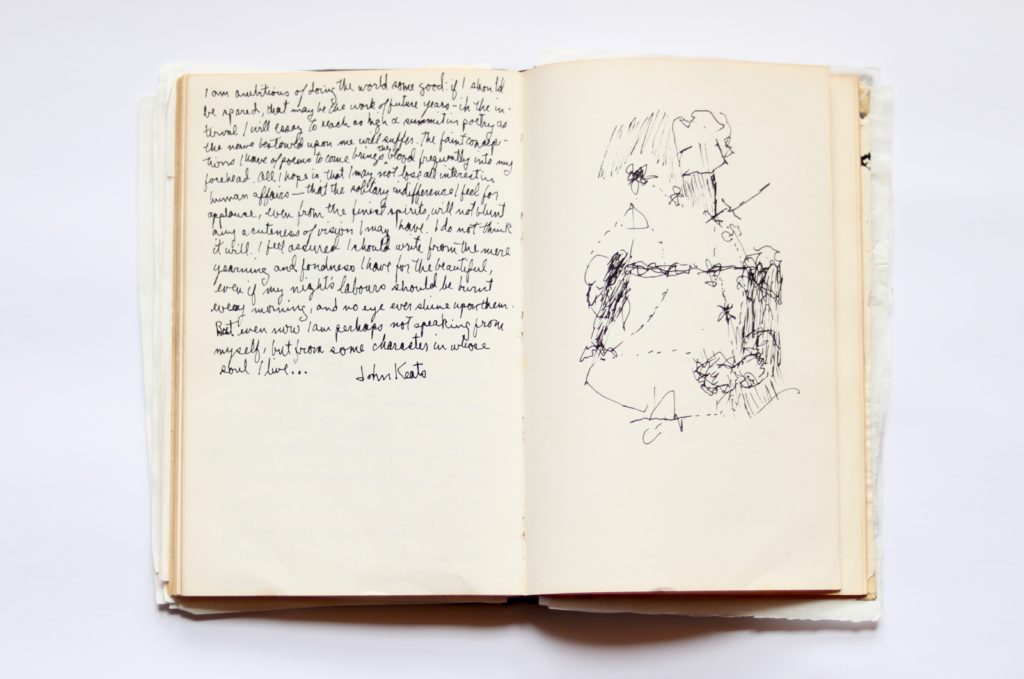 I am ambitious of doing the world some good: if I should
be spared, that may be the work of future years – in the in-
terval I will essay to reach as high a summit in poetry as
the nerve bestowed upon me will suffer. The faint concep-
tions I have of poems to come brings the blood frequently into my
forehead. All I hope is that I may not lose all interest in
human affairs – that the solitary indifference I feel for
applause, even from the finest spirits, will not blunt
any acuteness of vision I may have. I do not think
it will. I feel assured I should write from the mere
yearning and fondness I have for the beautiful,
even if my night's labours should be burnt
every morning, and no eye ever shine upon them.
But even now I am perhaps not speaking from
myself, but from some character in whose
soul I live...
John Keats